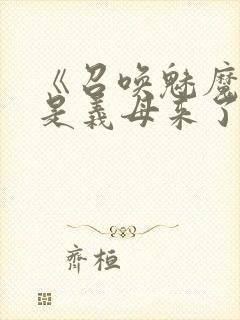 《召唤魅魔
是义母来了
齊桓